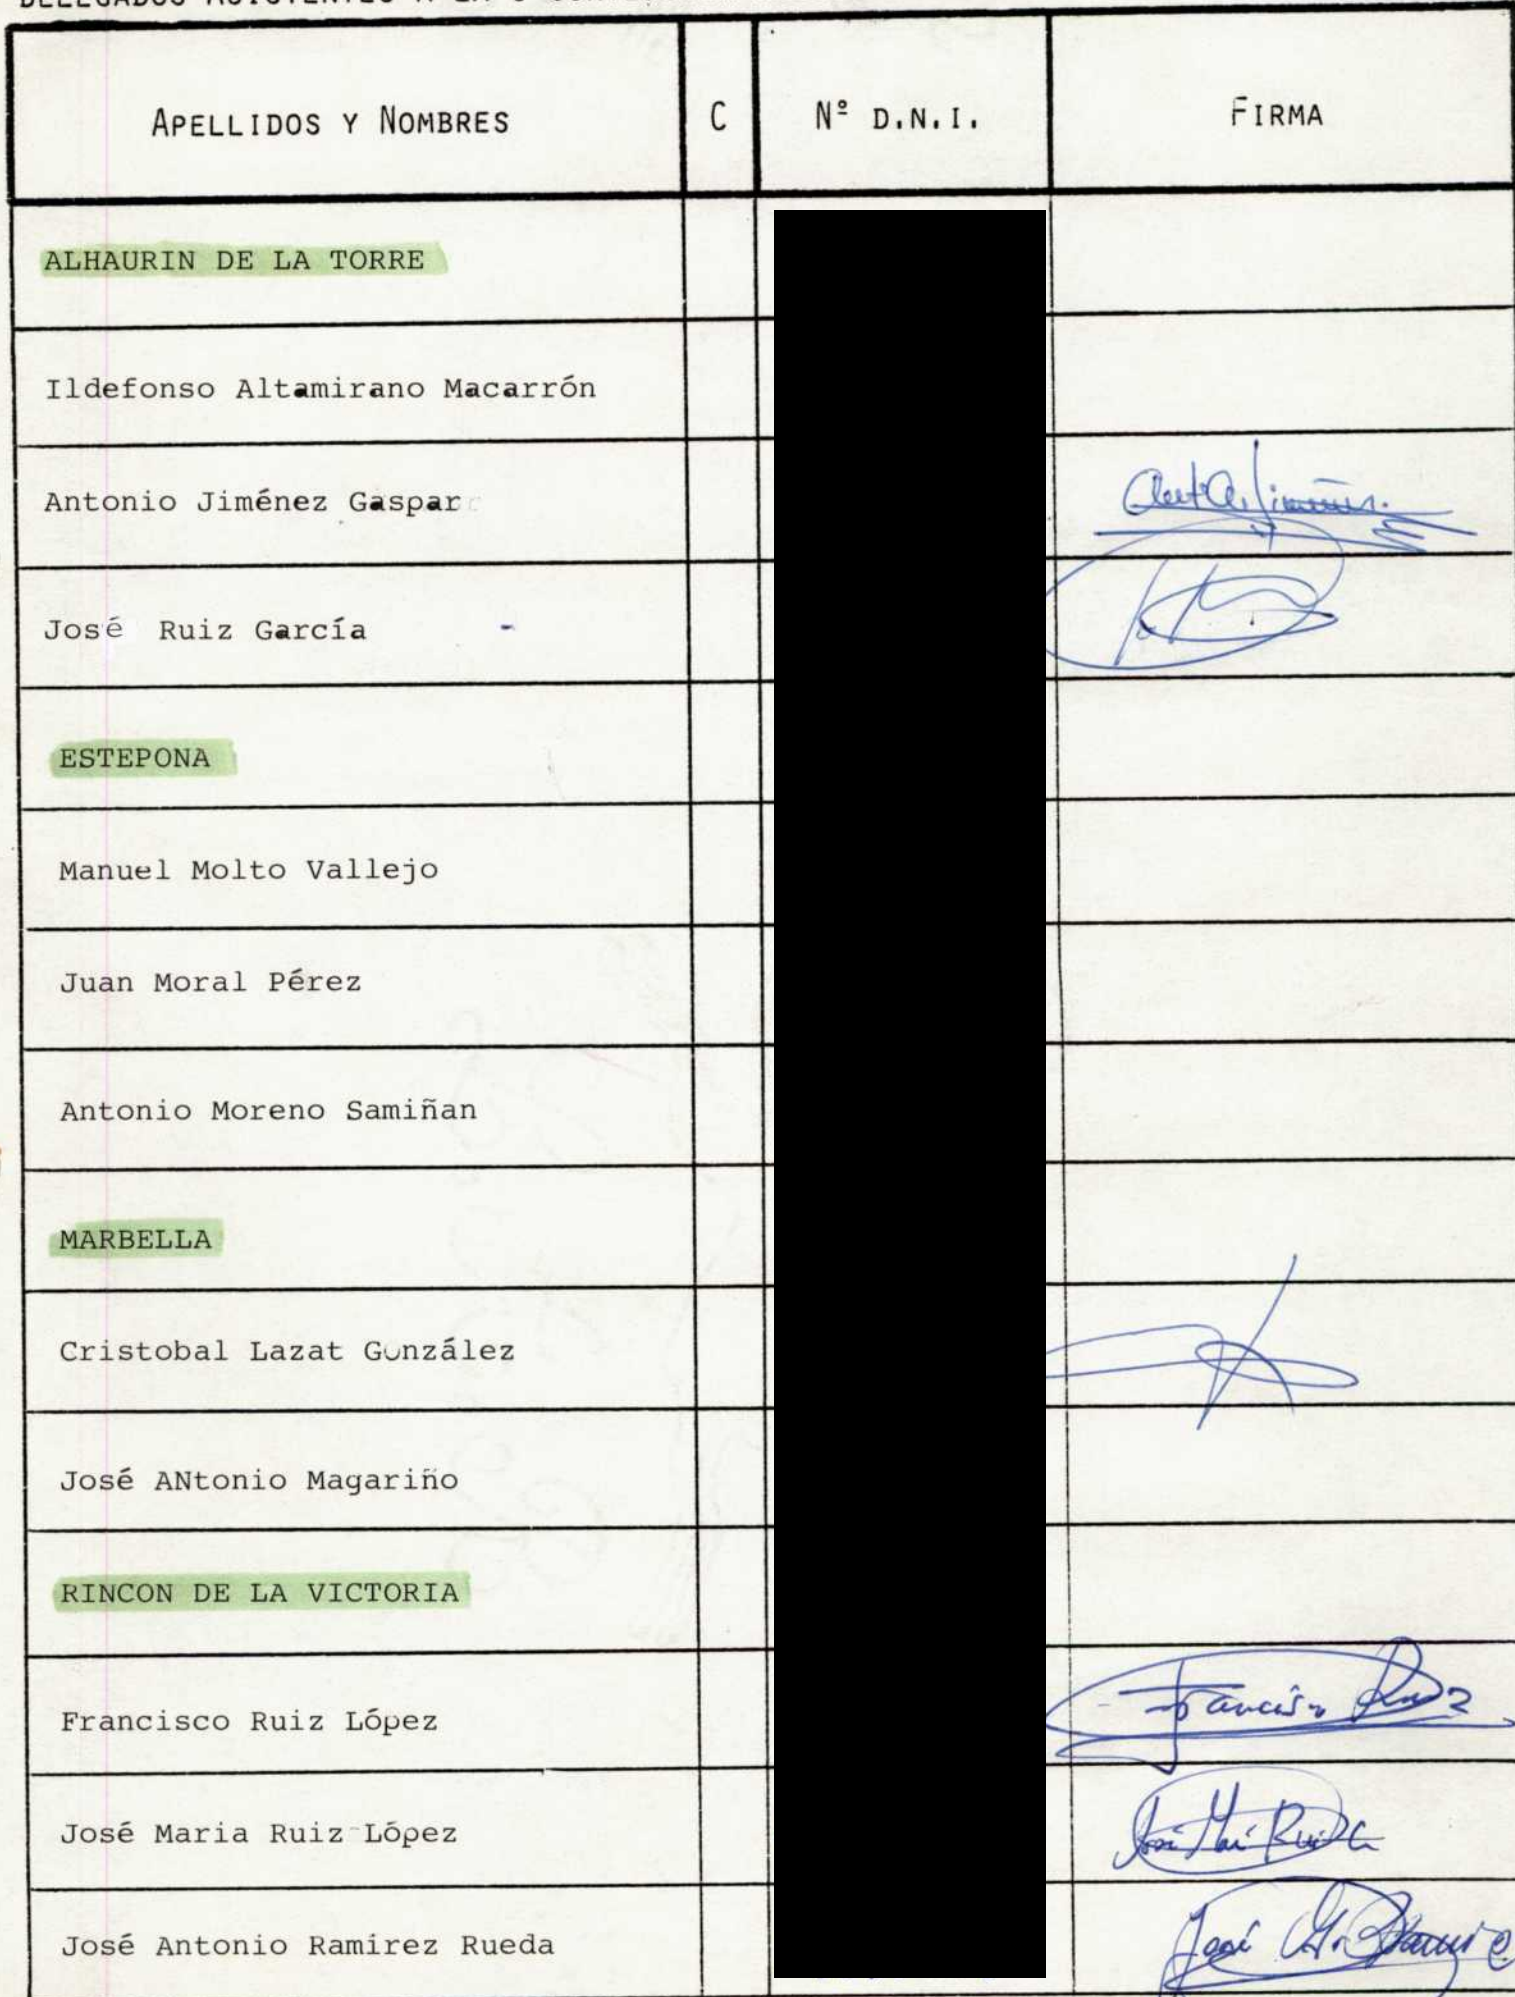 APELLIDOS Y NOMBRES C Nº D.N.I. FIRMA
ALHAURIN DE LA TORRE
Ildefonso Altamirano Macarrón
Antonio Jiménez Gaspar
José Ruiz García -
ESTEPONA
Manuel Molto Vallejo
Juan Moral Pérez
Antonio Moreno Samiñan
MARBELLA
Cristobal Lazat González
José ANtonio Magariño
RINCON DE LA VICTORIA
Francisco Ruiz López Francisco Ruiz
José Maria Ruiz López
José Antonio Ramirez Rueda José